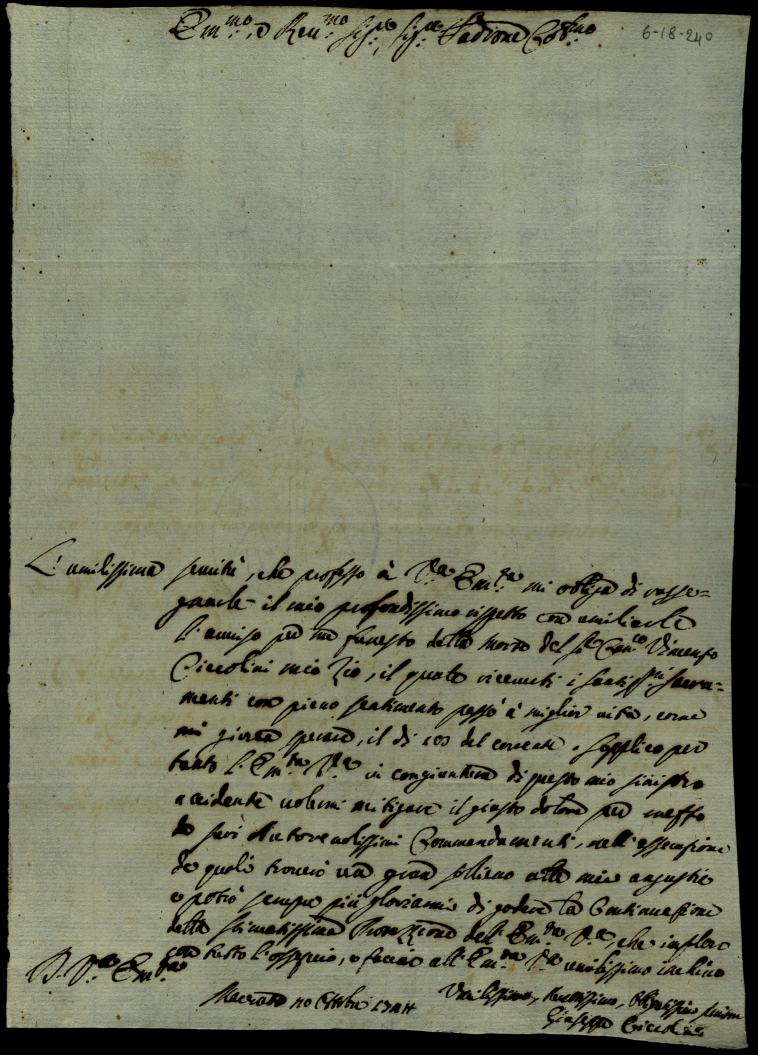 Em.mo, e Reu.mo Sig.re, Sig.re Padrone Col.mo
6-18-240
L'umilissima seruitù, che professo à V.ra Em.za mi obliga di rasse=
gnarle il mio profondissimo rispetto con umiliarle
l'auuiso per me funesto della morte del Sig.r Can.co Vincenzo
Ciccolini mio Zio, il quale riceuuti i Santiss.mi Sacra=
menti con pieno sentimento passò à miglior uita, come
mi gioua sperare, il di del corrente. Supplico per
tanto l'Em.za V.ra in congiuntura di questo mio sinistro
accidente uolermi mitigare il giusto dolore per mezzo
de suoi Autoreuolissimi Commandamenti, nell'essecuzione
de quali trouerò un gran sollieuo alle mie angustie
e potrò sempre più gloriarmi di godere la Continuazione
della stimatissima Protezzione dell'Em.za V.ra, che imploro
con tutto l'ossequio, e faccio all'Em.za V.ra umilissimo inchino
D. V.ra Em.za
Macerata 10 Ottobre
Umilissimo, Deuotissimo, Obligatissimo Seruitore
Giuseppe Ciccolini